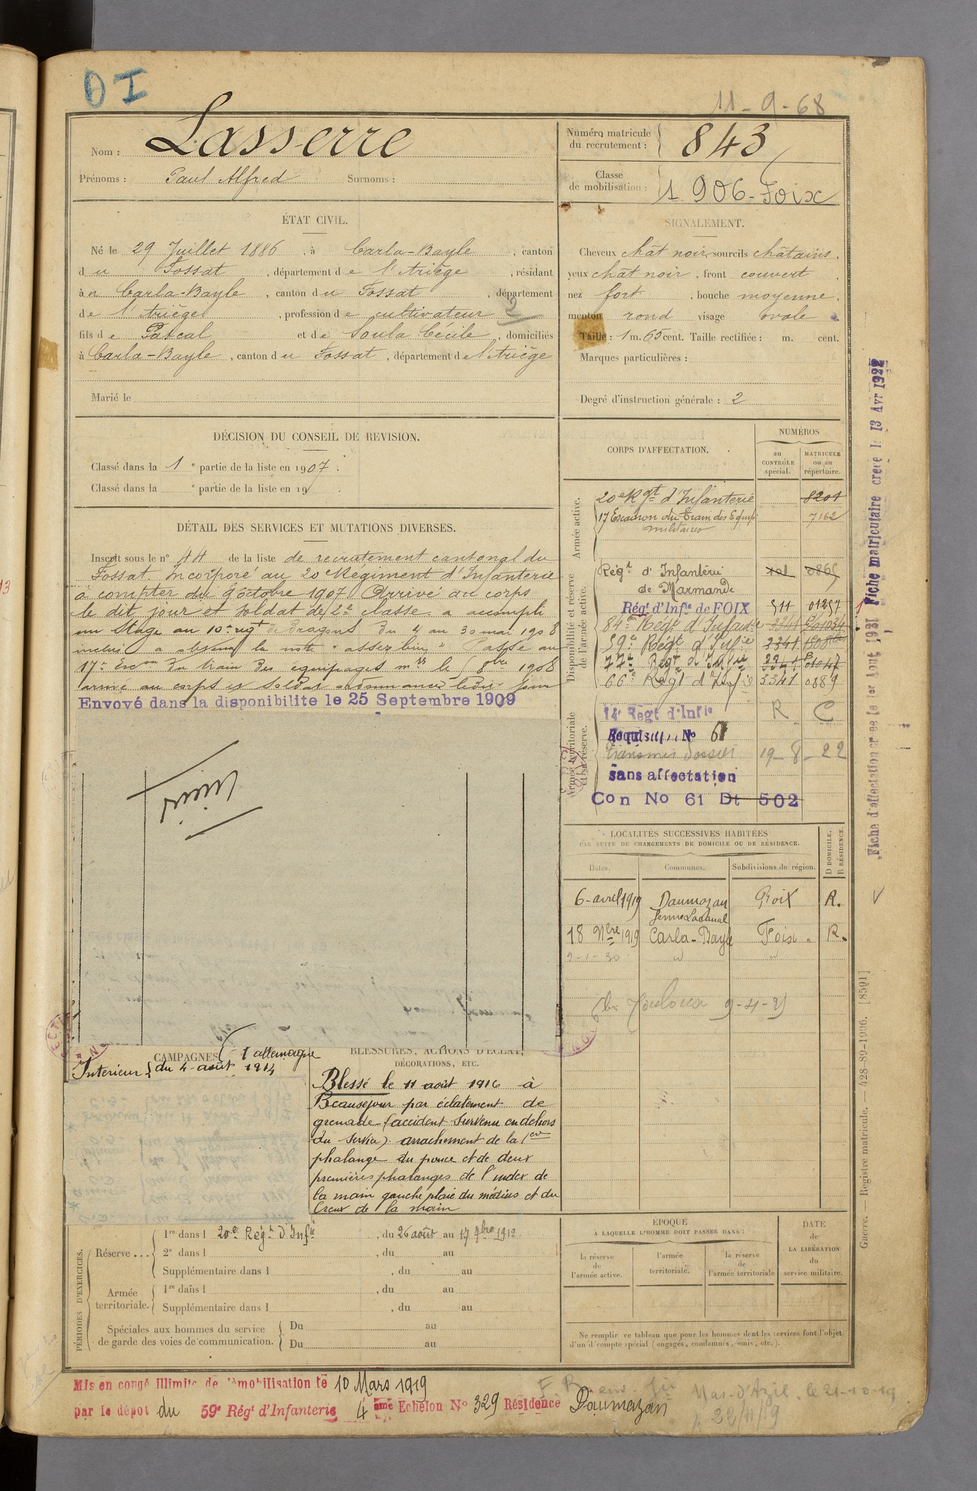 DI
11-9-68
Nom : Lasserre
Prénoms : Paul Alfred Surnoms :
Numéro matricule du recrutement : 843
Classe de mobilisation : 1906-Foix
ÉTAT CIVIL.
Né le 29 Juillet 1886, à Carla-Bayle, canton
du Fossat, département de l'Ariège, résidant
à Carla-Bayle, canton du Fossat, département
de l'Ariège, profession de cultivateur
fils de Pascal et de Soula Cécile, domiciliés
à Carla-Bayle, canton du Fossat, département de l'Ariège
Marié le
SIGNALEMENT.
Cheveux chât noir, sourcils châtains.
yeux chât noir, front couvert
nez fort, bouche moyenne,
menton rond visage ovale
Taille : 1 m. 65 cent. Taille rectifiée : m. cent.
Marques particulières :
Degré d'instruction générale : 2
DÉCISION DU CONSEIL DE REVISION.
Classé dans la 1 e partie de la liste en 1907.
Classé dans la e partie de la liste en 19
DÉTAIL DES SERVICES ET MUTATIONS DIVERSES.
Inscrit sous le n° 44 de la liste de recrutement cantonal du
Fossat. Incorporé au 20e Régiment d'Infanterie
à compter du 9 octobre 1907. Arrivé au corps
le dit jour et soldat de 2e classe. a accompli
un stage au 10e regt de Dragons du 4 au 30 mai 1908
a obtenu la note "assez bien". Passé au
17e Escon du train des équipages mres le 1908
arrivé au corps et soldat ledit jour
Envoyé dans la disponibilite le 25 Septembre 1909
CORPS D'AFFECTATION.
NUMÉROS
au CONTRÔLE spécial.
MATRICULE ou au répertoire.
Armée active.
20e Rgt d'Infanterie 8201
17 Escadron du Train des Equip militaires 7162
Disponibilité et réserve de l'armée active.
Régt d'Infanterie
de Marmande
Régt d'Infie de FOIX 511 01257
84e Régt d'Infanterie
59e Régt d'Infie
77e Régt d'Infie
66e Régt d'Infie 3341 0589
Armée territoriale et sa réserve.
14e Régt d'Infie R C
Réquisition No 61
Transmis Dossier 19-8-22
sans affectation
Con No 61 Dt 502
LOCALITÉS SUCCESSIVES HABITÉES
PAR SUITE DE CHANGEMENTS DE DOMICILE OU DE RÉSIDENCE.
Dates. Communes. Subdivisions de région. D DOMICILE. R RÉSIDENCE.
6-avril 1919 Daumazan Foix R.
18 9bre 1919 Carla-Bayle Foix. R.
Toulouse 9-4-31
CAMPAGNES
Intérieur du 4 août 1914
BLESSURES, ACTIONS D'ÉCLAT,
DÉCORATIONS, ETC.
Blessé le 11 août 1916 à
Beauséjour par éclatement de
grenade (accident survenu en dehors
du service) arrachement de la 1ère
phalange du pouce et de deux
premières phalanges de l'index de
la main gauche plaie du médius et du
creux de la main
PÉRIODES D'EXERCICES.
Réserve...
1re dans l 20e Régt d'Infie, du 26 août au 17 7bre 1912.
2e dans l , du au
Supplémentaire dans l , du au
Armée territoriale.
1re dans l , du au
Supplémentaire dans l , du au
Spéciales aux hommes du service de garde des voies de communication.
Du au
Du au
ÉPOQUE
À LAQUELLE L'HOMME DOIT PASSER DANS :
la réserve de l'armée active.
l'armée territoriale.
la réserve de l'armée territoriale
DATE DE LA LIBÉRATION du service militaire.
Ne remplir ce tableau que pour les hommes dont les services font l'objet
d'un décompte spécial (engagés, condamnés, omis, etc.).
Mis en congé illimité de démobilisation le 10 Mars 1919
par le dépôt du 59e Régt d'Infanterie 4 ème Echelon No 329 Résidence Daumazan
Mas-d'Azil, le 21-10-19
22/11/19
Fiche matriculaire créée le 13 Avr 1922
Guerre. — Registre matricule. — 428-89-1906. [8591]